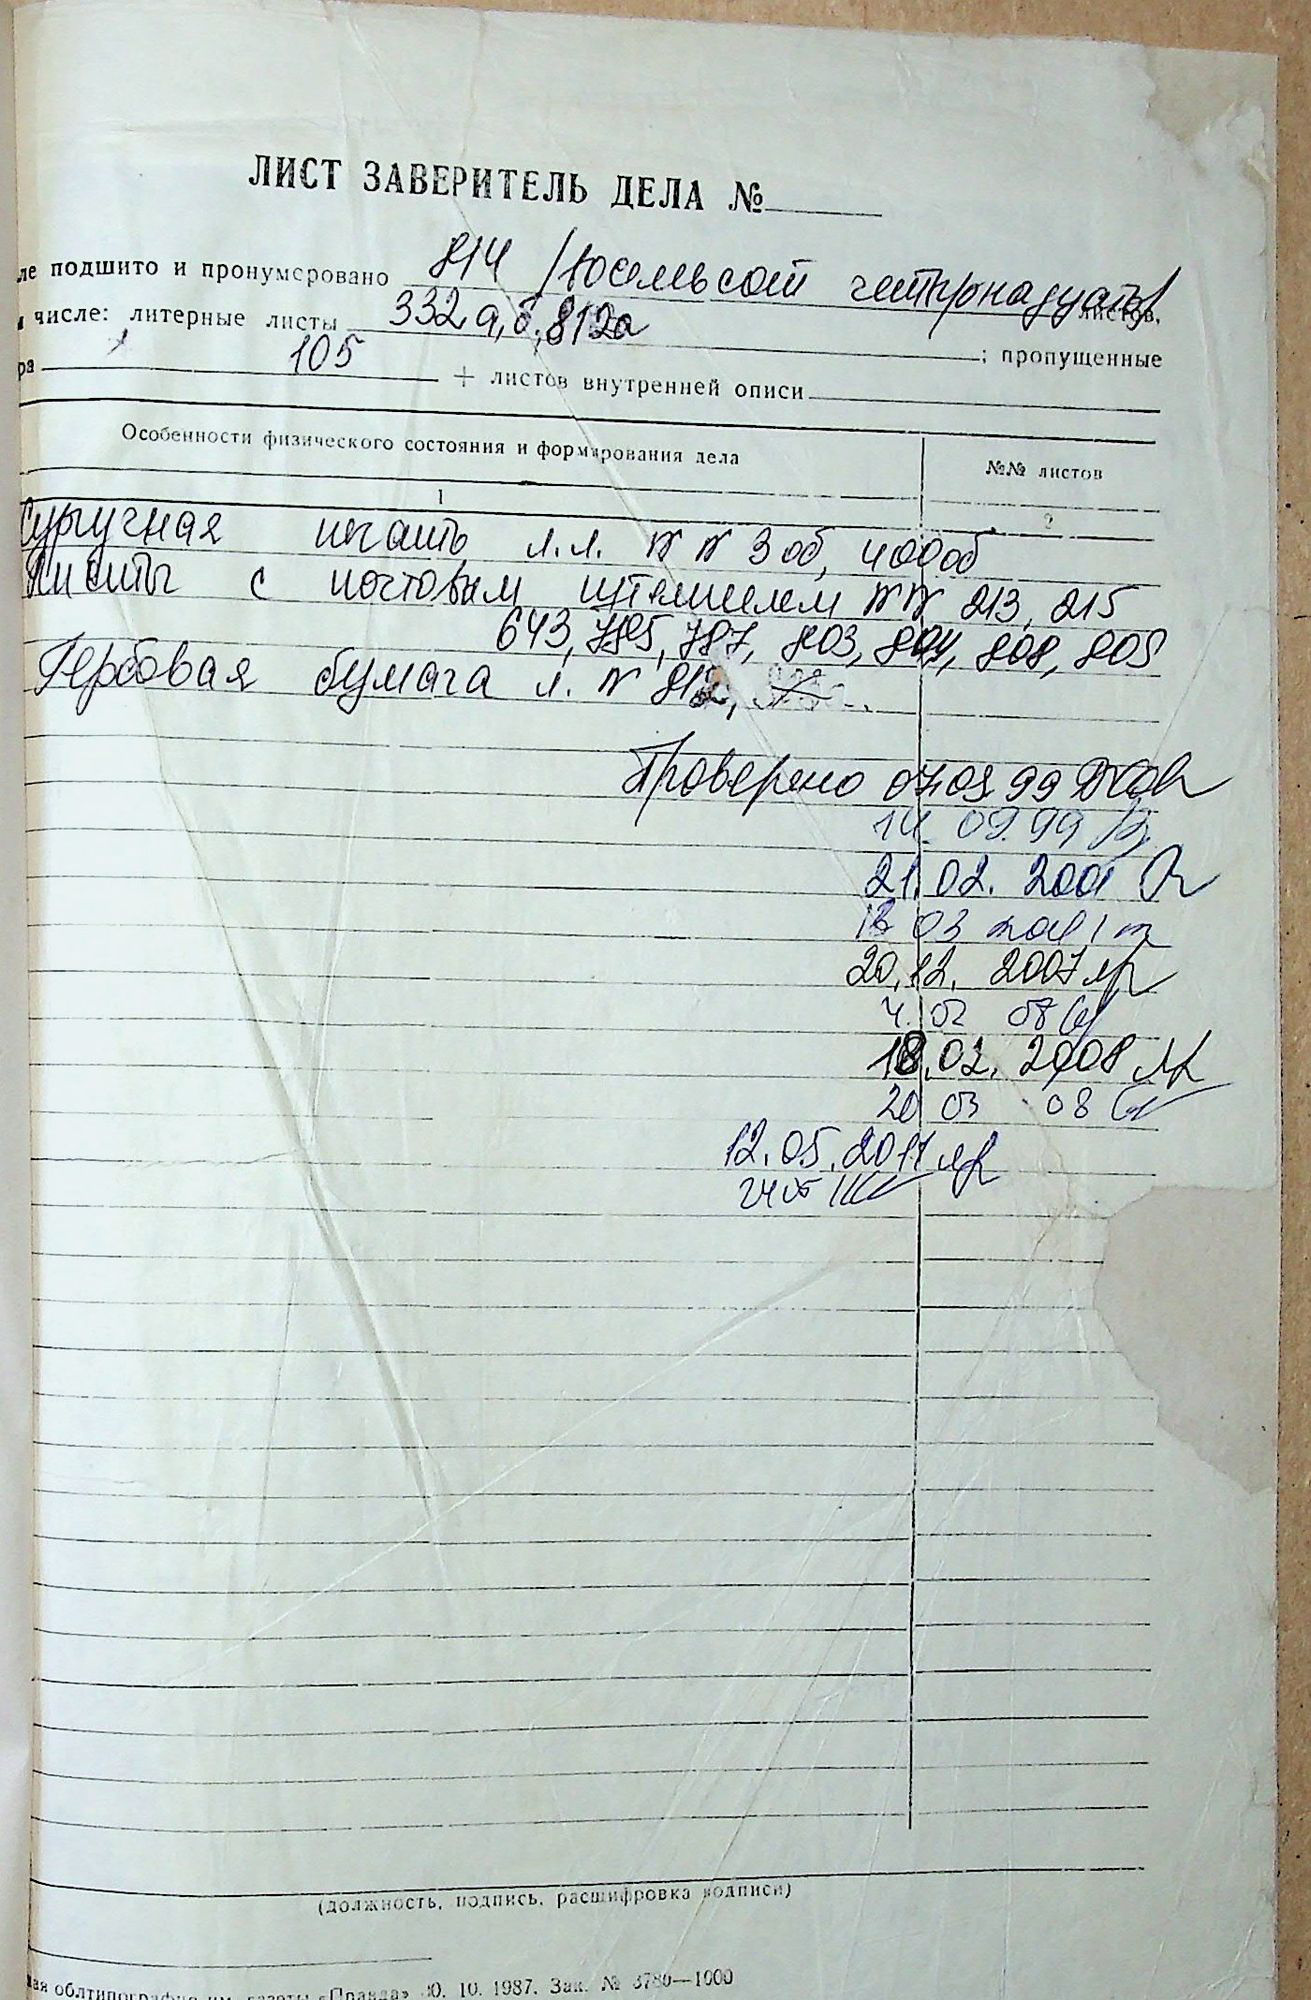 ЛИСТ ЗАВЕРИТЕЛЬ ДЕЛА №
ле подшито и пронумеровано 814 /восемьсот четырнадцать/ листов,
числе: литерные листы 332 а, б, 812а ; пропущенные
ра 105 + листов внутренней описи
Особенности физического состояния и формирования дела
№№ листов
1
2
Сургучная печать л.л. NN 3 об, 400 об
Листы с почтовым штемпелем NN 213, 215
643, 785, 787, 803, 804, 808, 805
Гербовая бумага л. N 812,
Проверено 07.09 99
14. 09. 99
21.02. 2001
03
20.12. 2007
4. 02 08
18.02. 2008
20 03 08
12.05.2011
24 05
(должность, подпись, расшифровка подписи)
ная облтипография им. газеты «Правда» 30. 10. 1987. Зак. № 3780—1000